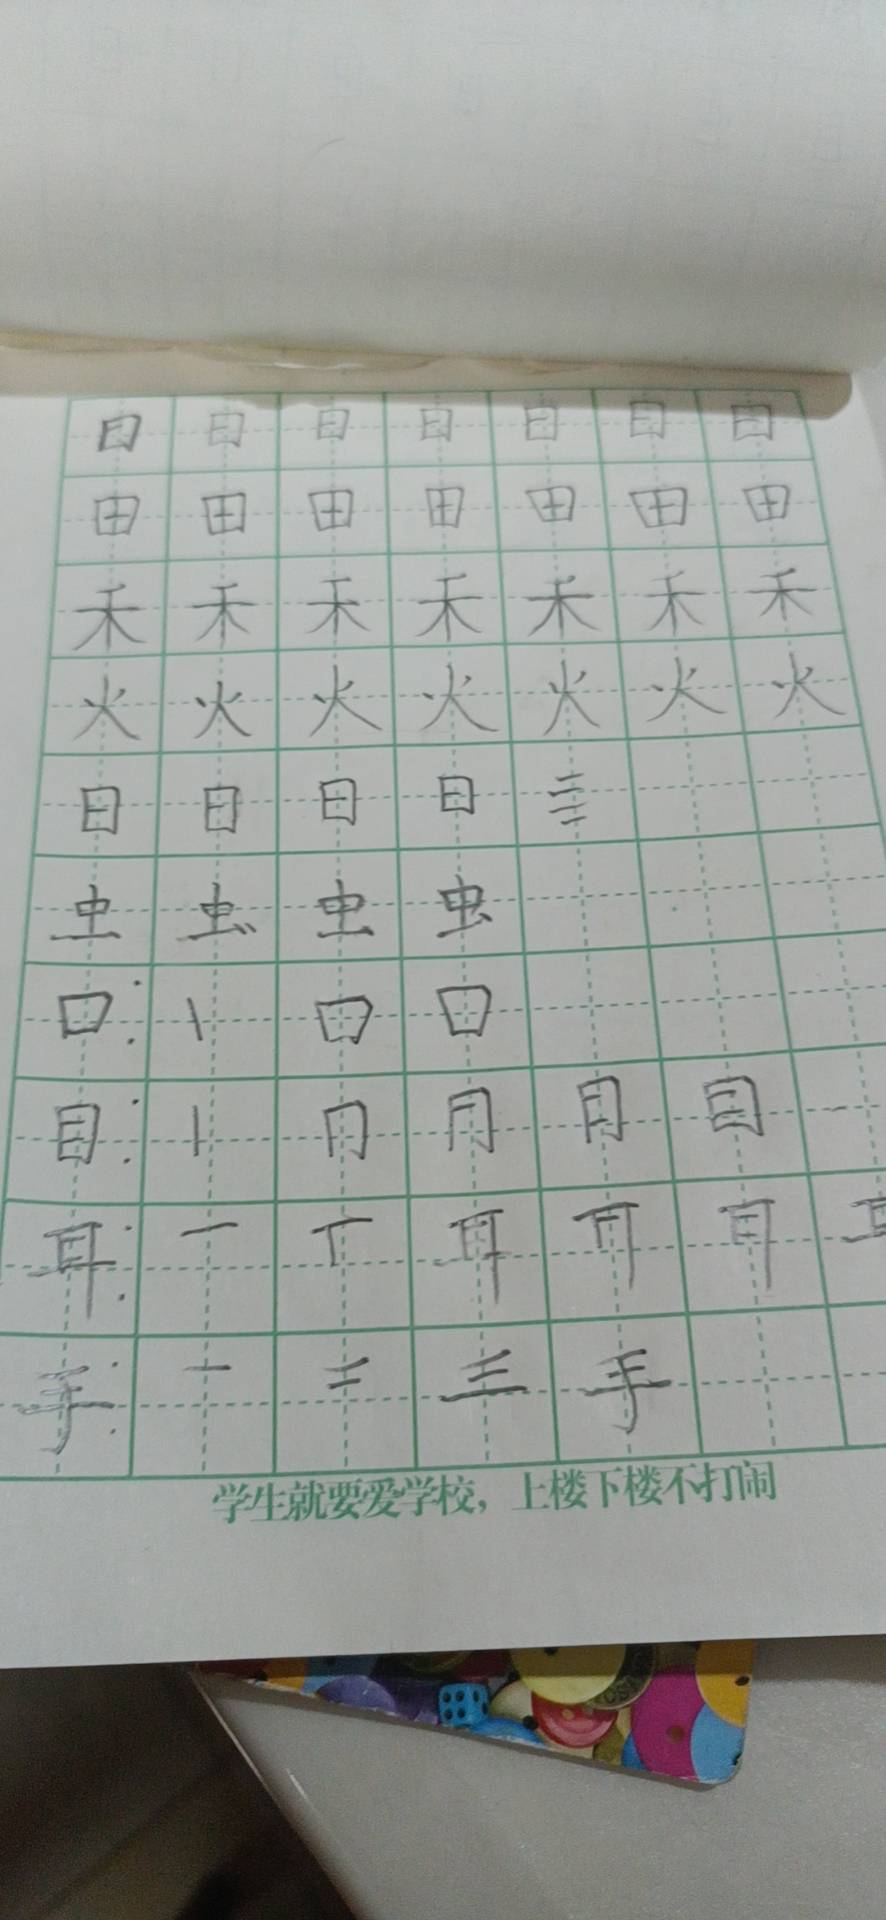 日 日 日 日 日 日 日
田 田 田 田 田 田 田
禾 禾 禾 禾 禾 禾 禾
火 火 火 火 火 火 火
日 日 日 日
虫 虫 虫 虫
口: 丨 口 口
目: 丨 冂 月 目
耳: 一 丅 耳
手: 一 二 三 手
学生就要爱学校，上楼下楼不打闹